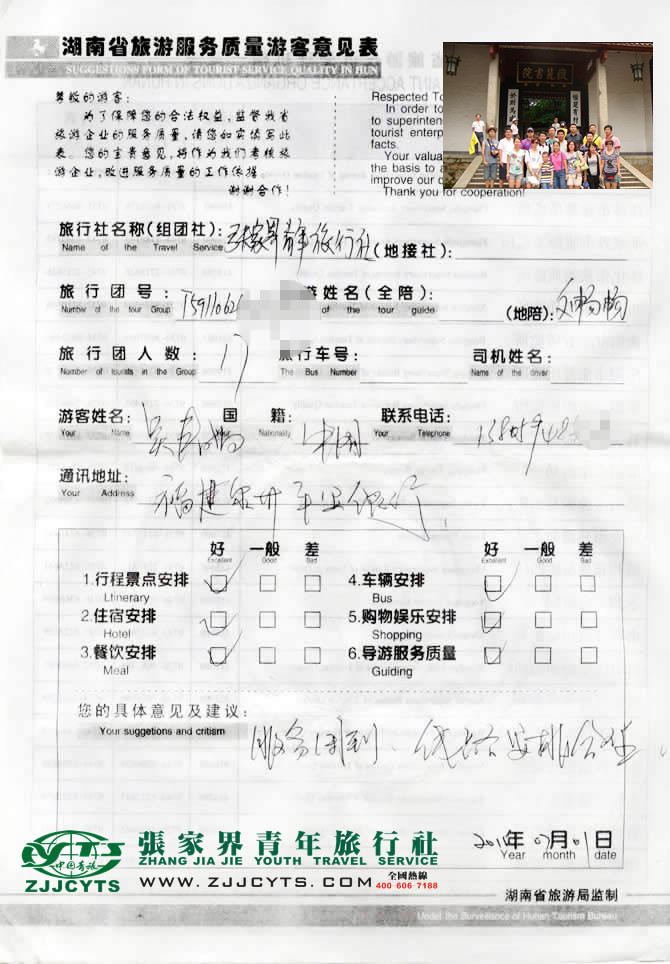 湖南省旅游服务质量游客意见表
SUGGESTIONS FORM OF TOURIST SERVICE QUALITY IN HUN
尊敬的游客:
为了保障您的合法权益,监督我省
旅游企业的服务质量,请您如实填写此
表。您的宝贵意见,将作为我们考核旅
游企业,改进服务质量的工作依据。
谢谢合作!
Respected To
In order to
to superintend
tourist enterp
facts.
Your valua
the basis to a
improve our
Thank you for cooperation!
旅行社名称(组团社): 张家界青年旅行社 (地接社):
Name of the Travel Service
旅行团号: 姓名(全陪): (地陪):
Number of the tour Group of the tour guide
旅行团人数: 17 旅行车号: 司机姓名:
Number of tourists in the Group The Bus Number Name of the driver
游客姓名: 国籍: 中国 联系电话:
Your Name Nationality Your Telephone
通讯地址: 福建泉州
Your Address
好 一般 差 好 一般 差
Excellent Good Bad Excellent Good Bad
1.行程景点安排 4.车辆安排
Ltinerary Bus
2.住宿安排 5.购物娱乐安排
Hotel Shopping
3.餐饮安排 6.导游服务质量
Meal Guiding
您的具体意见及建议:
Your suggetions and critism
服务周到、线路安排合理
張家界青年旅行社
ZHANG JIA JIE YOUTH TRAVEL SERVICE
CYTS 中国青旅
ZJJCYTS
WWW.ZJJCYTS.COM 全國熱線 400-606-7188
2011年07月01日
Year month date
湖南省旅游局监制
Under the Surveillance of Hunan Tourism Bureau